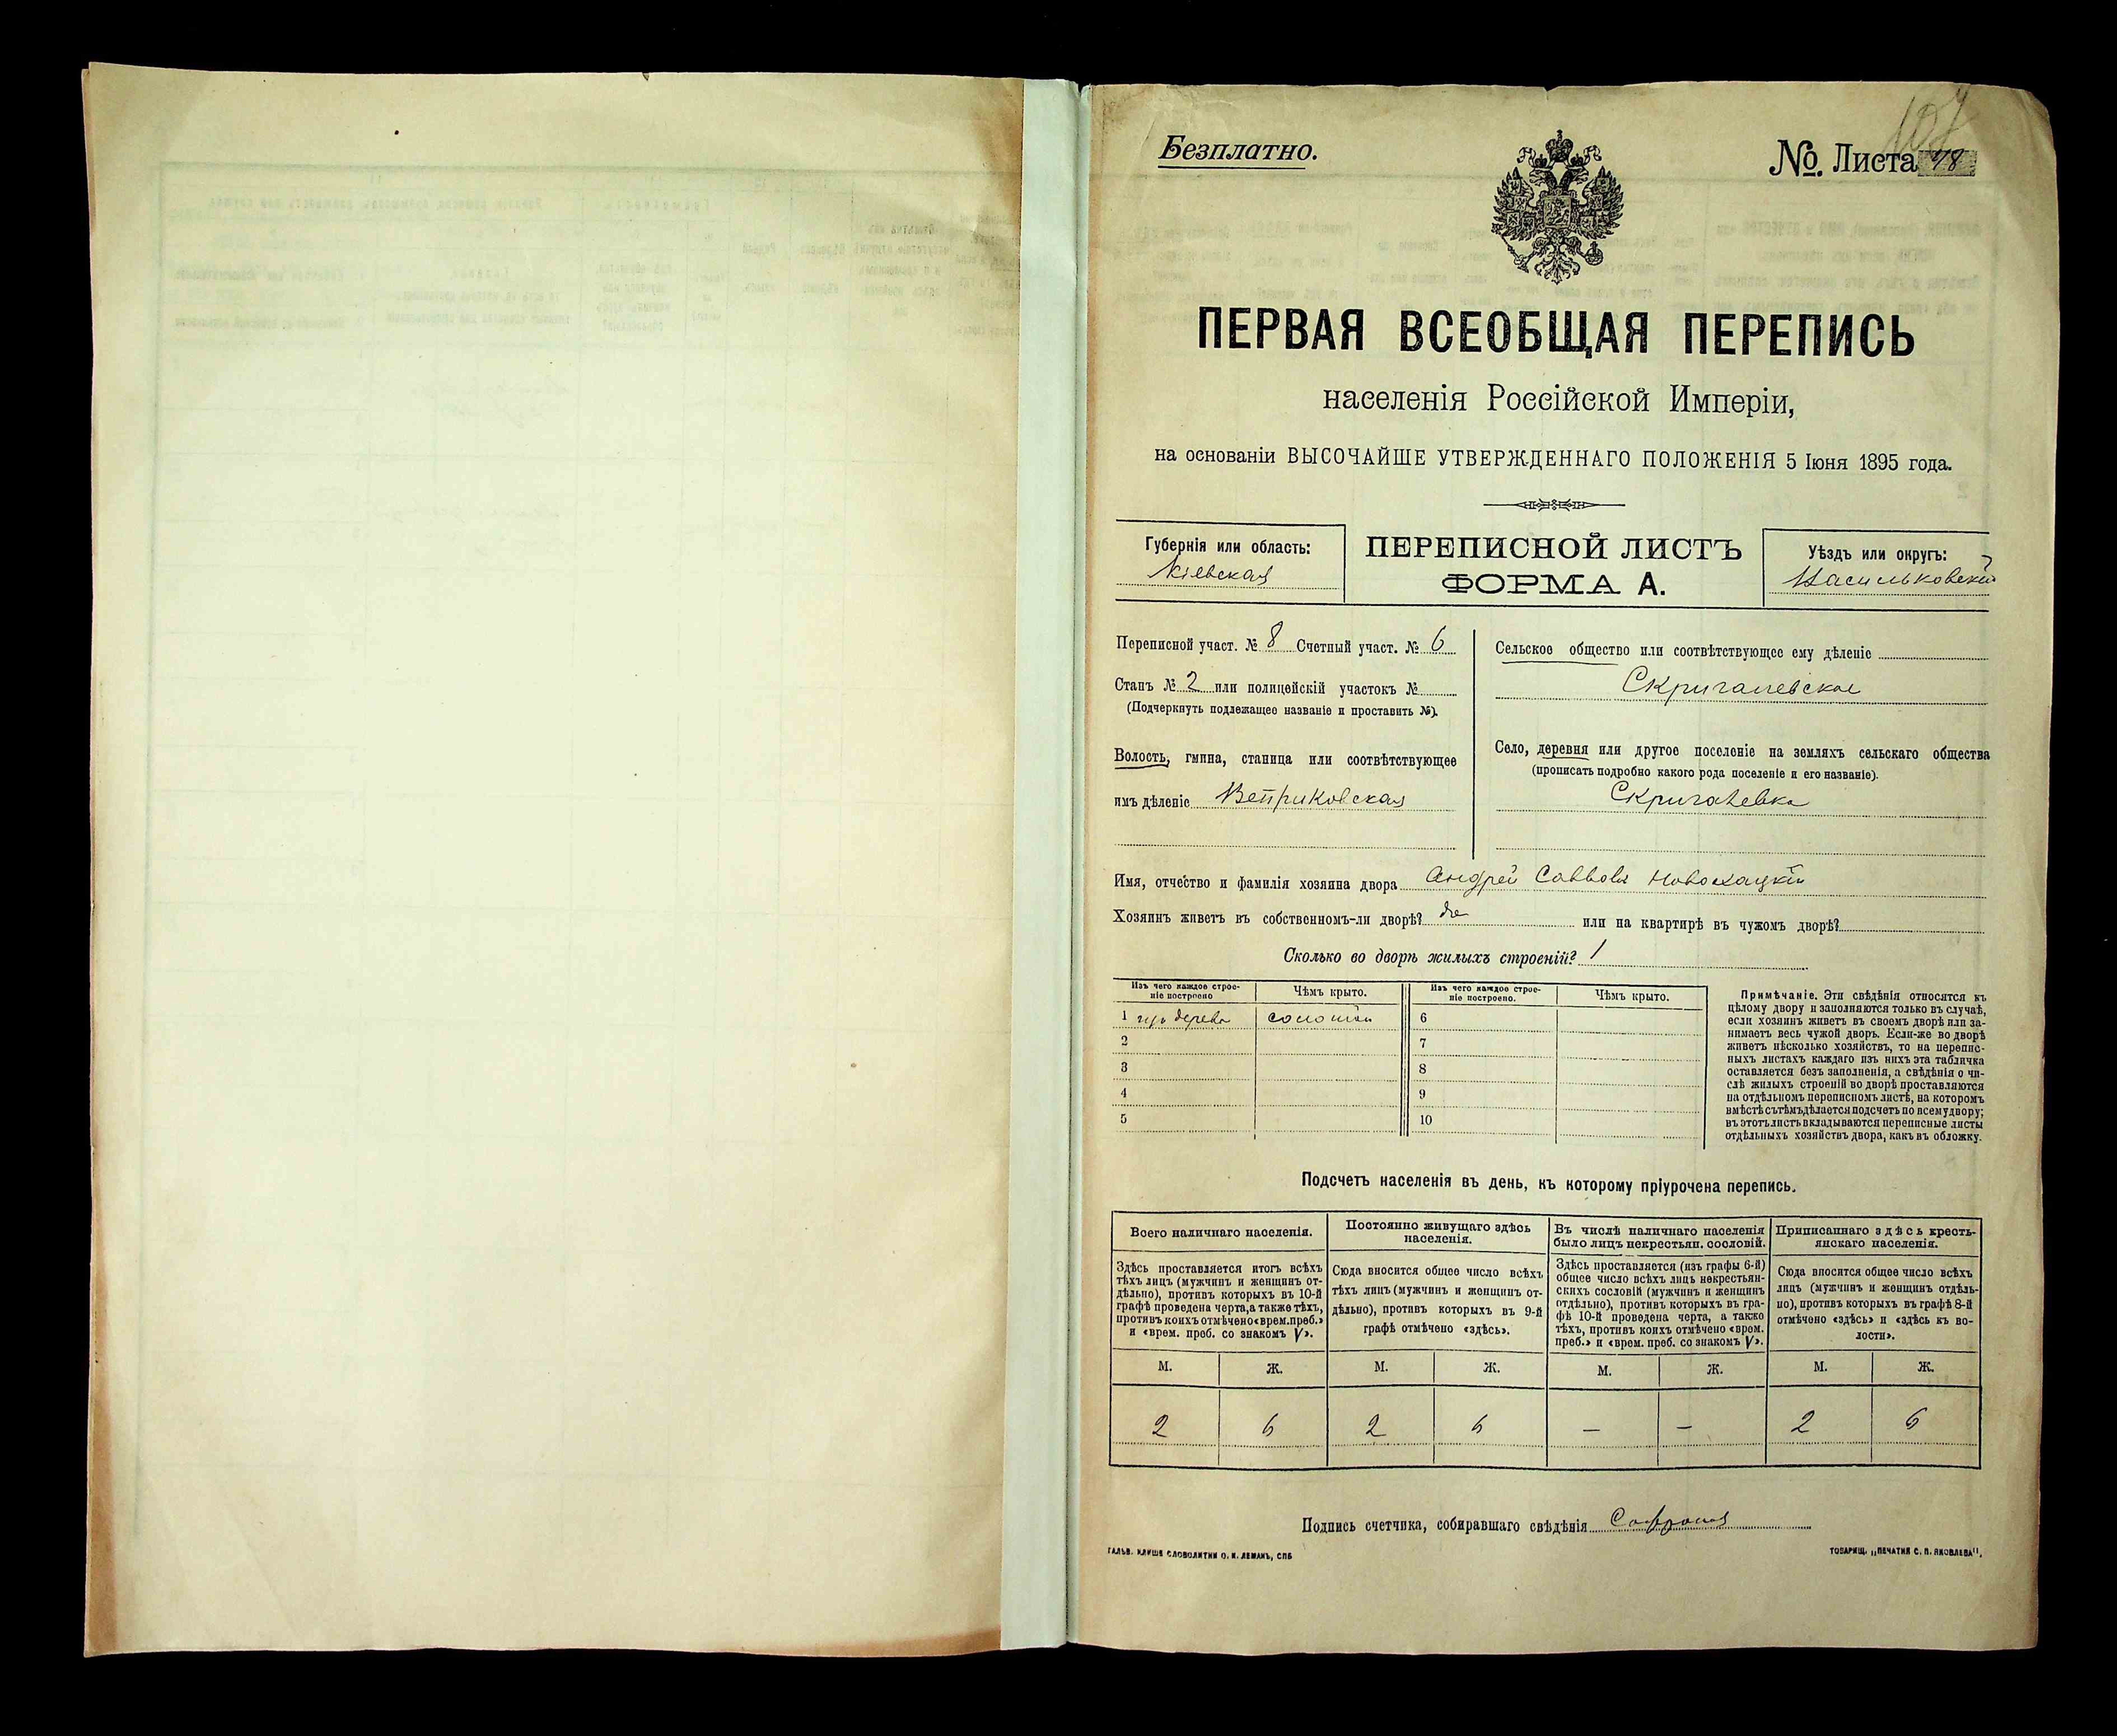 Безплатно.
№ Листа 78
107
ПЕРВАЯ ВСЕОБЩАЯ ПЕРЕПИСЬ
населенія Россійской Имперіи,
на основаніи ВЫСОЧАЙШЕ УТВЕРЖДЕННАГО ПОЛОЖЕНІЯ 5 Іюня 1895 года.
Губернія или область:
Кіевская
ПЕРЕПИСНОЙ ЛИСТЪ
ФОРМА А.
Уѣздъ или округъ:
Васильковскій
Переписной участ. № 8 Счетный участ. № 6
Станъ № 2 или полицейскій участокъ №
(Подчеркнуть подлежащее названіе и проставить №).
Волость, гмина, станица или соотвѣтствующее
имъ дѣленіе Веприковская
Сельское общество или соотвѣтствующее ему дѣленіе
Скригалевское
Село, деревня или другое поселеніе на земляхъ сельскаго общества
(прописать подробно какого рода поселеніе и его названіе).
Скригалевка
Имя, отчество и фамилія хозяина двора Андрей Саввовъ
Хозяинъ живетъ въ собственномъ-ли дворѣ? да или на квартирѣ въ чужомъ дворѣ?
Сколько во дворѣ жилыхъ строеній? 1
Изъ чего каждое строе-
ніе построено
Чѣмъ крыто.
Изъ чего каждое строе-
ніе построено.
Чѣмъ крыто.
1 изъ дерева соломой 6
2 7
3 8
4 9
5 10
Примѣчаніе. Эти свѣдѣнія относятся къ
цѣлому двору и заполняются только въ случаѣ,
если хозяинъ живетъ въ своемъ дворѣ или за-
нимаетъ весь чужой дворъ. Если-же во дворѣ
живетъ нѣсколько хозяйствъ, то на перепис-
ныхъ листахъ каждаго изъ нихъ эта табличка
оставляется безъ заполненія, а свѣдѣнія о чи-
слѣ жилыхъ строеній во дворѣ проставляются
на отдѣльномъ переписномъ листѣ, на которомъ
вмѣстѣ съ тѣмъ дѣлается подсчетъ по всему двору;
въ этотъ листъ вкладываются переписные листы
отдѣльныхъ хозяйствъ двора, какъ въ обложку.
Подсчетъ населенія въ день, къ которому пріурочена перепись.
Всего наличнаго населенія.
Здѣсь проставляется итогъ всѣхъ
тѣхъ лицъ (мужчинъ и женщинъ от-
дѣльно), противъ которыхъ въ 10-й
графѣ проведена черта, а также тѣхъ,
противъ коихъ отмѣчено «врем. преб.»
и «врем. преб. со знакомъ V».
Постоянно живущаго здѣсь
населенія.
Сюда вносится общее число всѣхъ
тѣхъ лицъ (мужчинъ и женщинъ от-
дѣльно), противъ которыхъ въ 9-й
графѣ отмѣчено «здѣсь».
Въ числѣ наличнаго населенія
было лицъ некрестьян. сословій.
Здѣсь проставляется (изъ графы 6-й)
общее число всѣхъ лицъ некрестьян-
скихъ сословій (мужчинъ и женщинъ
отдѣльно), противъ которыхъ въ гра-
фѣ 10-й проведена черта, а также
тѣхъ, противъ коихъ отмѣчено «врем.
преб.» и «врем. преб. со знакомъ V».
Приписаннаго здѣсь кресть-
янскаго населенія.
Сюда вносится общее число всѣхъ
лицъ (мужчинъ и женщинъ отдѣль-
но), противъ которыхъ въ графѣ 8-й
отмѣчено «здѣсь» и «здѣсь къ во-
лости».
М. Ж. М. Ж. М. Ж. М. Ж.
2 6 2 6 — — 2 6
Подпись счетчика, собиравшаго свѣдѣнія
ГАЛЬВ. КЛИШЕ СЛОВОЛИТНИ О. И. ЛЕМАНЪ, СПБ
ТОВАРИЩ. „ПЕЧАТНЯ С. П. ЯКОВЛЕВА“.